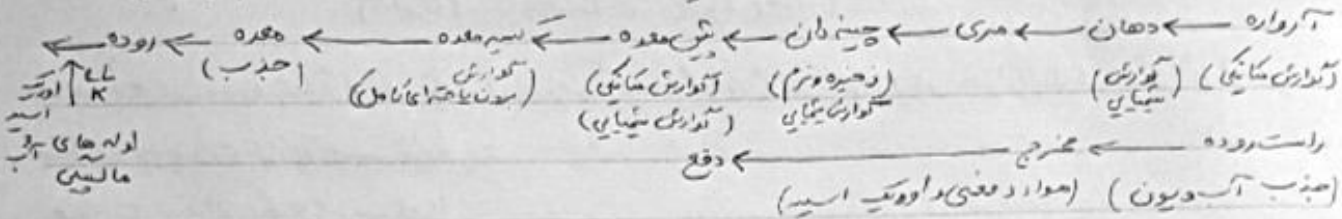 آرواره ← دهان ← مری ← چینه دان ← پیش معده ← کیسه معده ← معده ← روده ←
(گوارش مکانیکی) (گوارش شیمیایی) (ذخیره و نرم گوارش شیمیایی) (گوارش مکانیکی) (گوارش شیمیایی) (گوارش برون یاخته ای کامل) (جذب) اوریک اسید آب لوله های مالپیگی
راست روده ← مخرج ← دفع
(جذب آب و یون) (مواد دفعی و اوریک اسید)